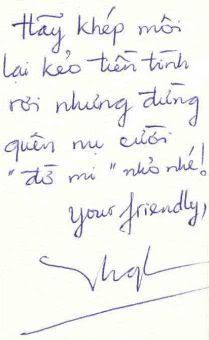 Hãy khép môi
lại kẻo tiền tình
rơi nhưng đừng
quên nụ cười
"đồ mi" nhỏ nhé!
Your friendly,